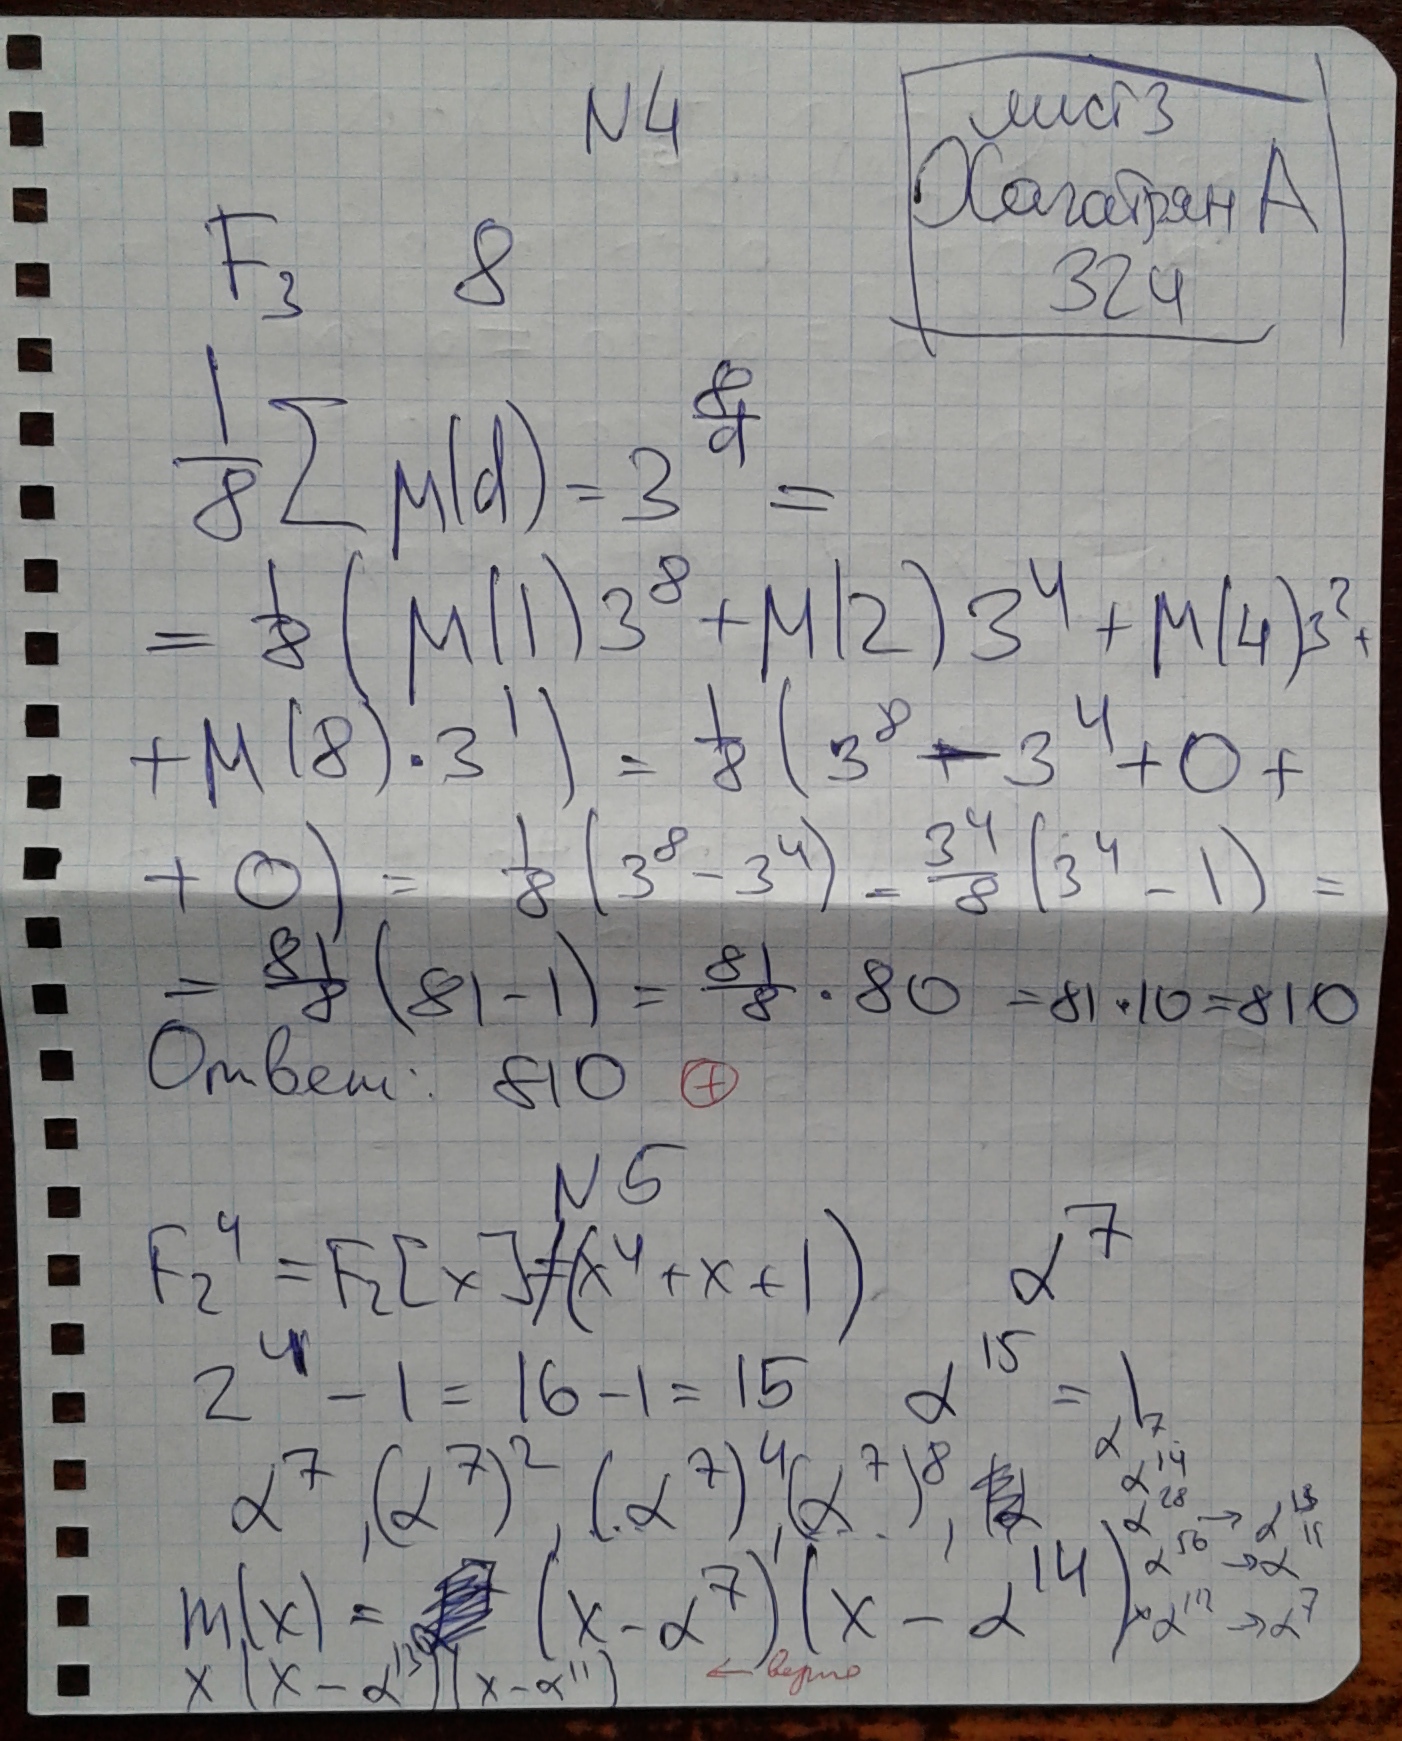 N4
лист 3
Хачатрян А
324
F₃ 8
1/8 Σ μ(d) = 3^(8/d) =
= 1/8 ( μ(1) 3⁸ + μ(2) 3⁴ + μ(4) 3² +
+ μ(8) · 3¹ ) = 1/8 ( 3⁸ - 3⁴ + 0 +
+ 0 ) = 1/8 ( 3⁸ - 3⁴ ) = 3⁴/8 ( 3⁴ - 1 ) =
= 81/8 ( 81 - 1 ) = 81/8 · 80 = 81 · 10 = 810
Ответ: 810 ⊕
N5
F₂⁴ = F₂[x]/(x⁴ + x + 1) α⁷
2⁴ - 1 = 16 - 1 = 15 α¹⁵ = 1
α⁷, (α⁷)², (α⁷)⁴, (α⁷)⁸,
α⁷
α¹⁴
α²⁸ → α¹³
α⁵⁶ → α¹¹
α¹¹² → α⁷
m(x) = (x - α⁷)(x - α¹⁴) ×
× (x - α¹³)(x - α¹¹) ← верно